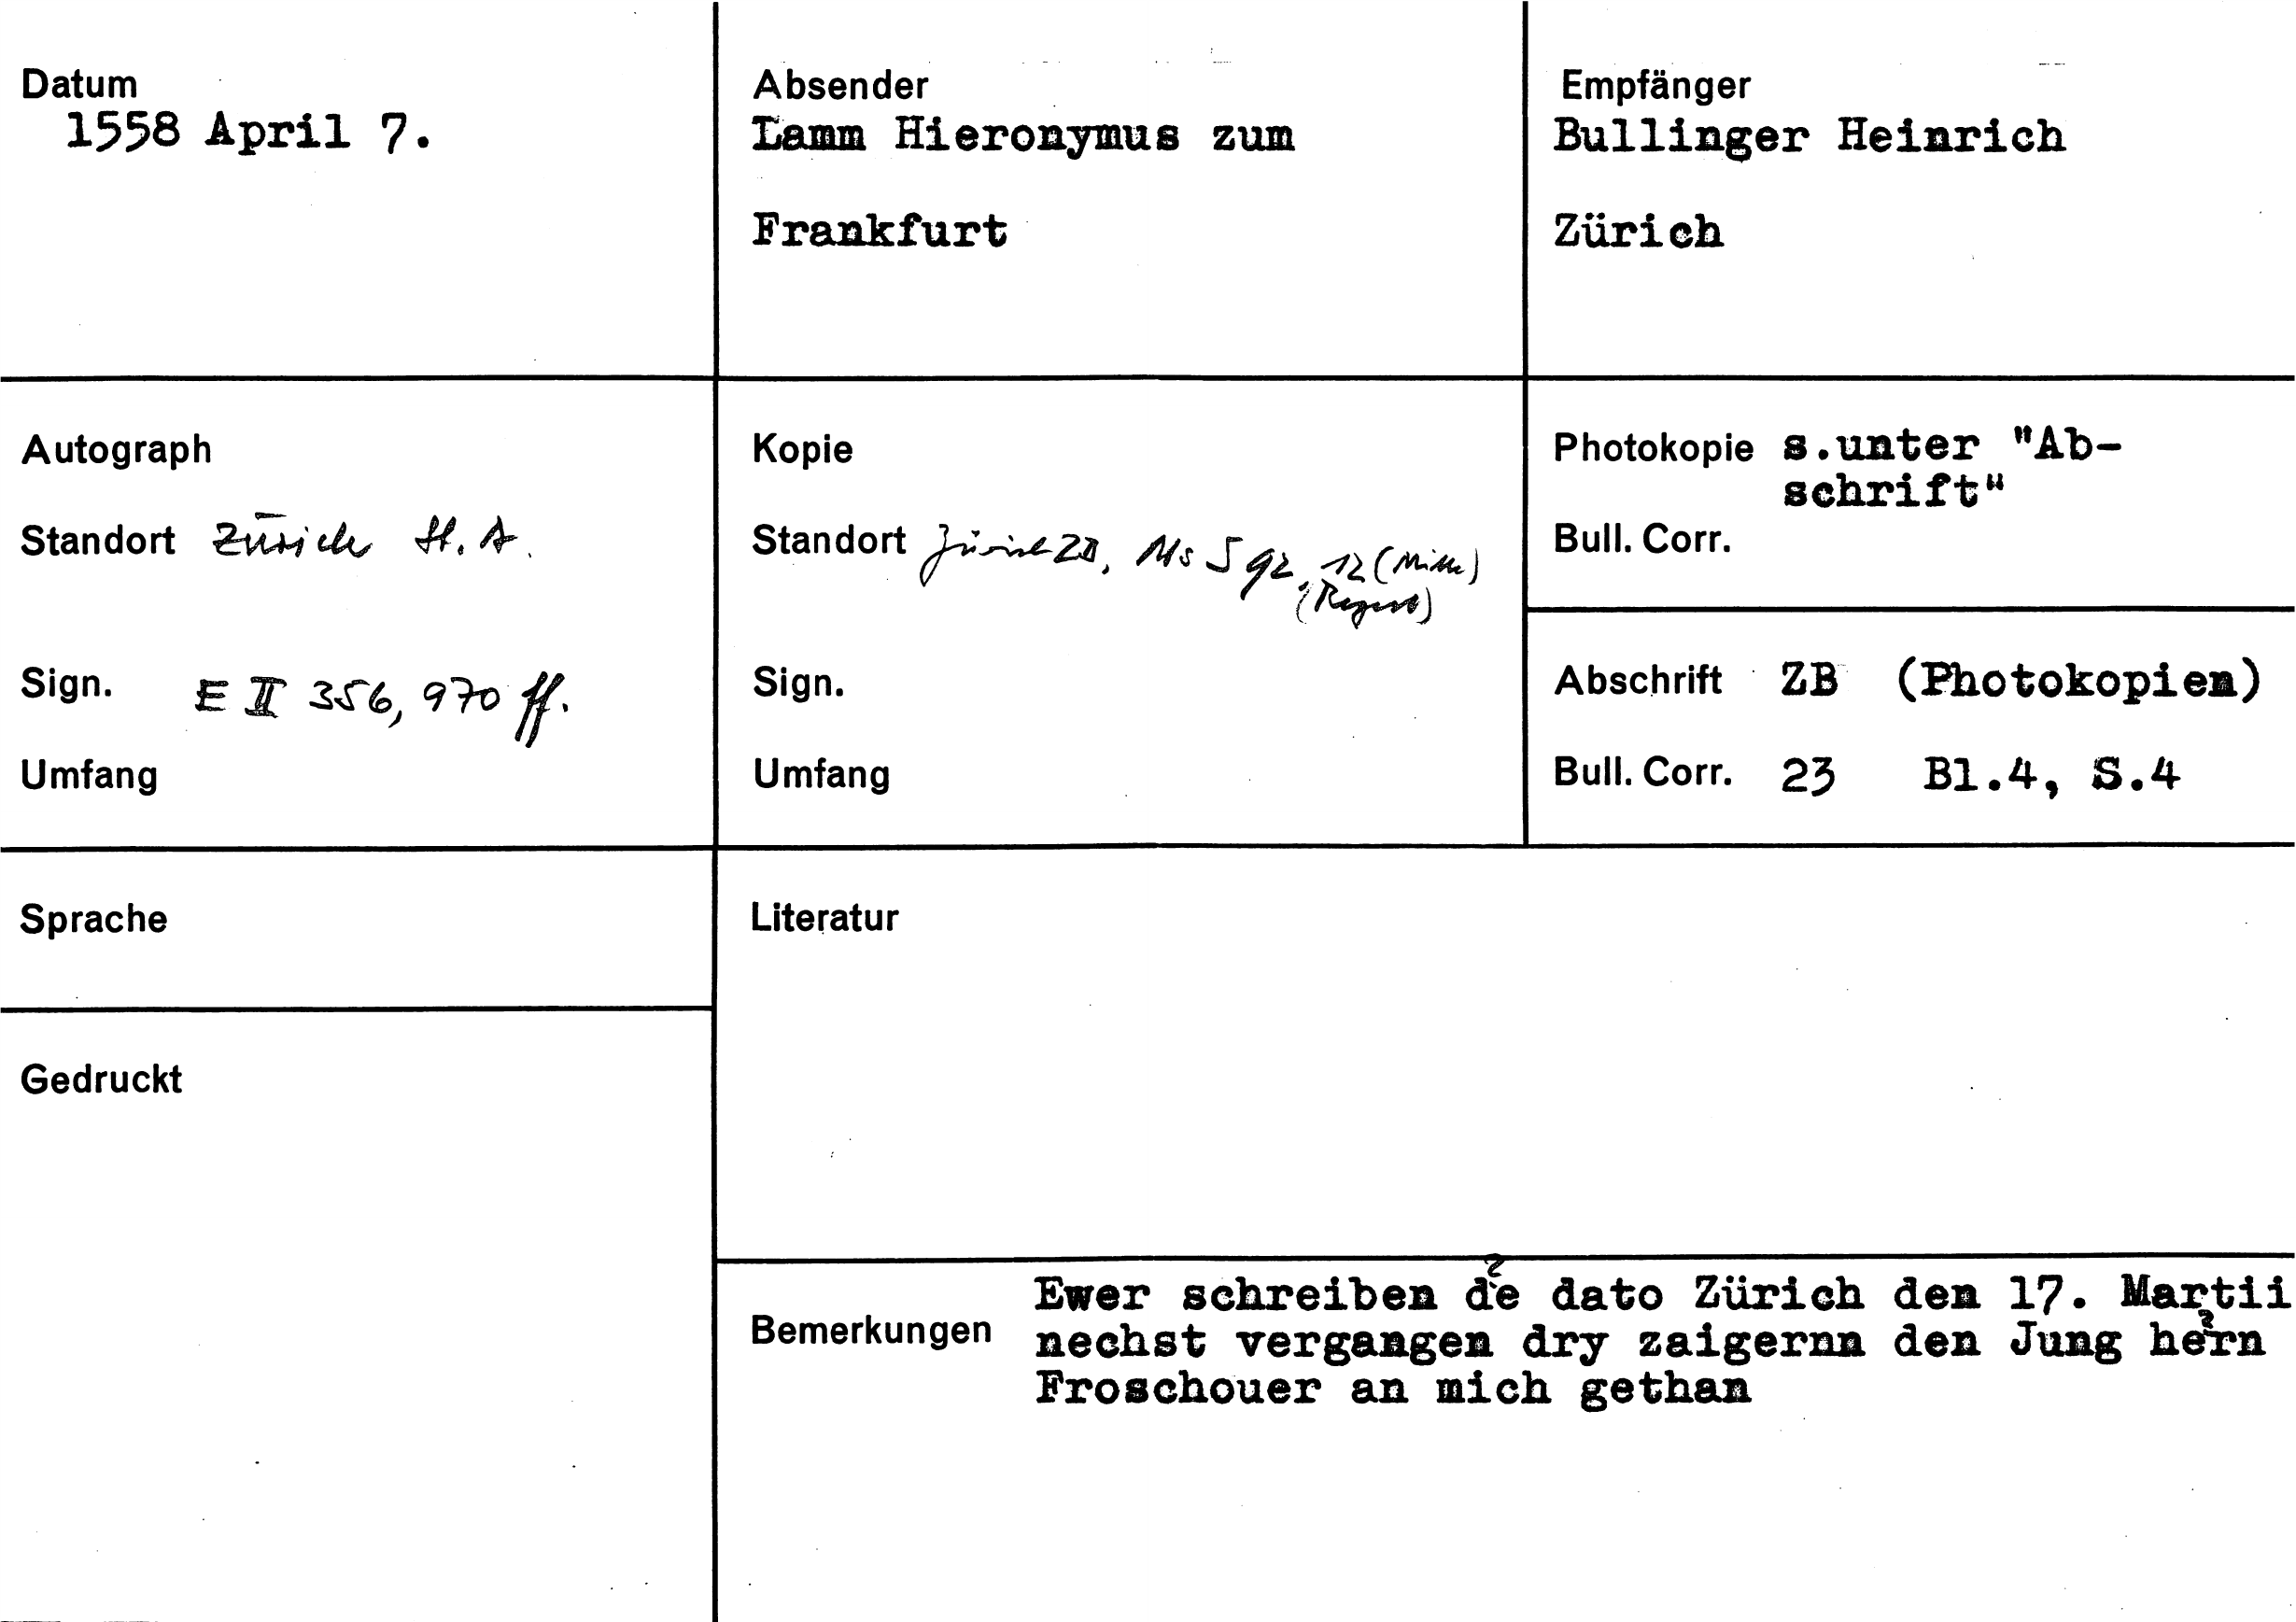 Datum
1558 April 7.
Absender
Lamm Hieronymus zum
Frankfurt
Empfänger
Bullinger Heinrich
Zürich
Autograph
Standort Zürich St. A.
Sign. E II 356, 970 ff.
Umfang
Kopie
Standort Zürich ZB, Ms S 92, 12 (Mitte)
(Regest)
Sign.
Umfang
Photokopie s.unter "Ab-
schrift"
Bull. Corr.
Abschrift ZB (Photokopien)
Bull. Corr. 23 Bl.4, S.4
Sprache
Literatur
Gedruckt
Bemerkungen
Ewer schreiben de dato Zürich den 17. Martii
nechst vergangen dry zaigernn den Jung hern
Froschouer an mich gethan